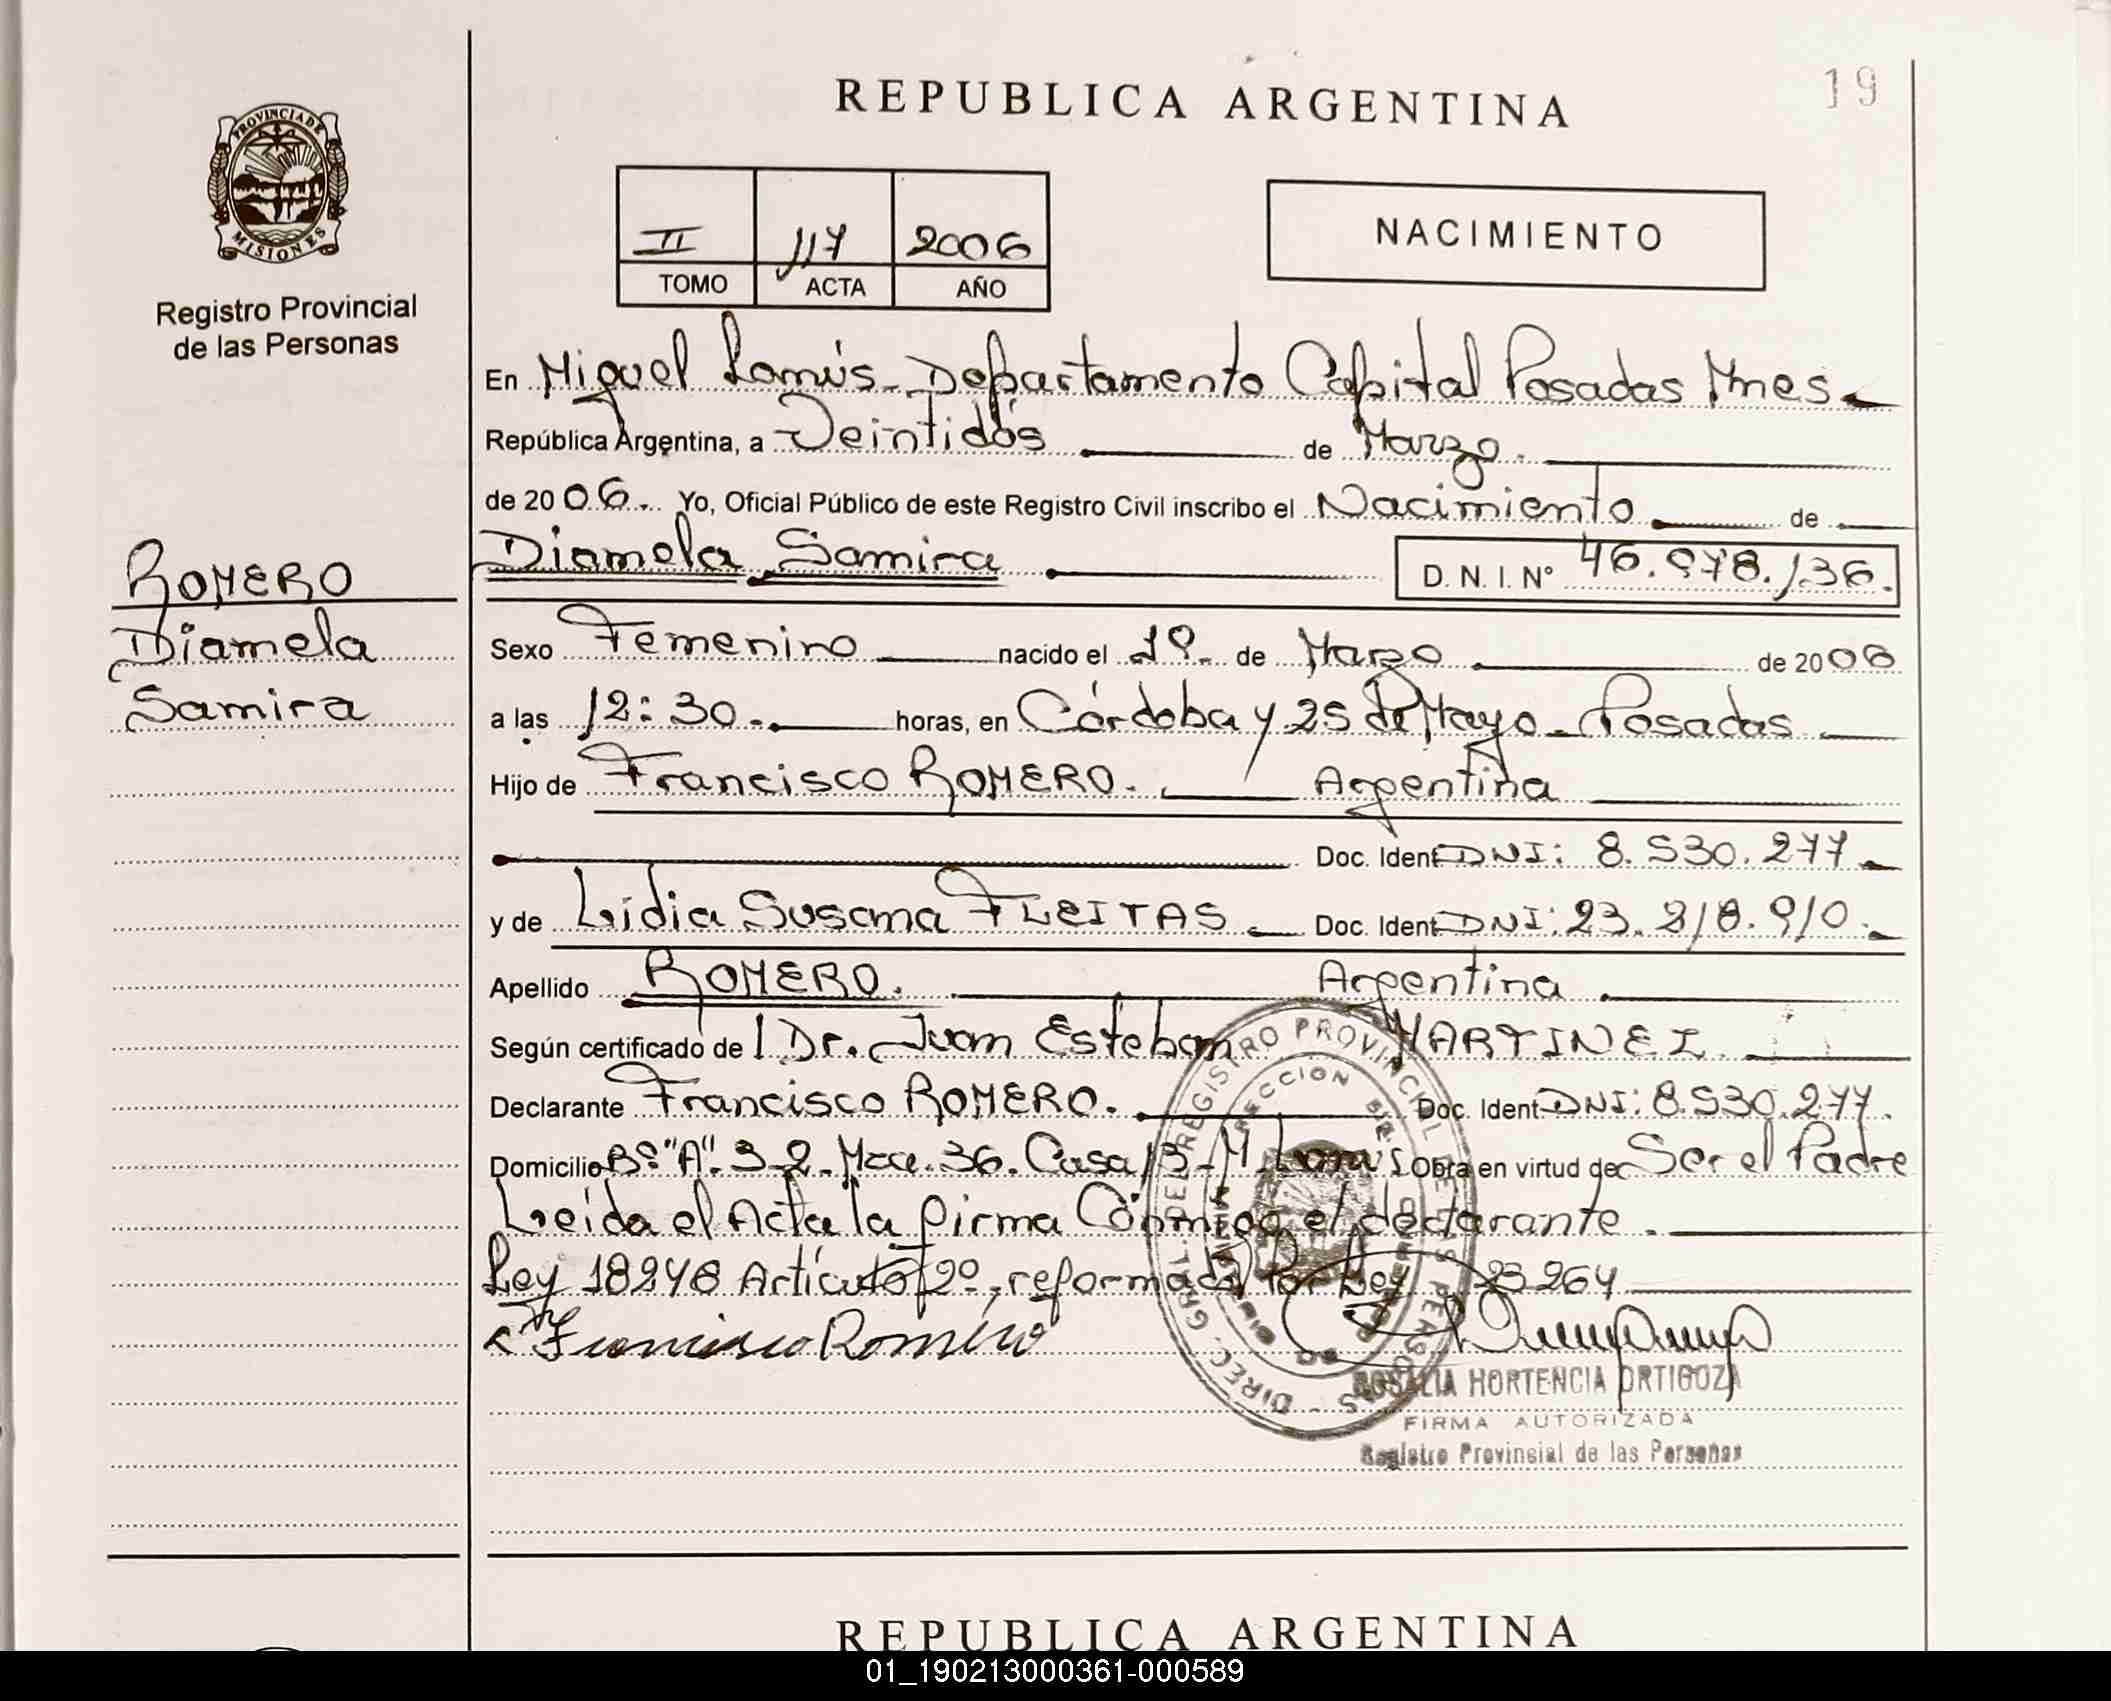 REPUBLICA ARGENTINA
19
PROVINCIA DE
MISIONES
Registro Provincial
de las Personas
II 117 2006
TOMO ACTA AÑO
NACIMIENTO
En Miguel Lanús - Departamento Capital Posadas Mnes
República Argentina, a Veintidós de Marzo.
de 2006. Yo, Oficial Público de este Registro Civil inscribo el Nacimiento de
Diamela Samira D. N. I. N° 46.978.136.
ROMERO
Diamela
Samira
Sexo Femenino nacido el 1º. de Marzo de 2006
a las 12:30. horas, en Córdoba y 25 de Mayo - Posadas
Hijo de Francisco ROMERO. Argentina
Doc. Ident DNI: 8.530.277
y de Lidia Susana FLEITAS. Doc. Ident DNI: 23.218.910.
Apellido ROMERO. Argentina
Según certificado de l Dr. Juan Esteban MARTINEZ
Declarante Francisco ROMERO. Doc. Ident DNI: 8.530.277.
Domicilio Bº "A". 3-2. Mza. 36. Casa 13 - M. Lanús Obra en virtud de Ser el Padre
Leída el Acta la firma Conmigo el declarante.
Ley 18248 Artículo 2º, reformado Por Ley 23264
Francisco Romero
DIREC. GRAL. DEL REGISTRO PROVINCIAL DE LAS PERSONAS
ROSALIA HORTENCIA ORTIGOZA
FIRMA AUTORIZADA
Registro Provincial de las Personas
REPUBLICA ARGENTINA
01_190213000361-000589